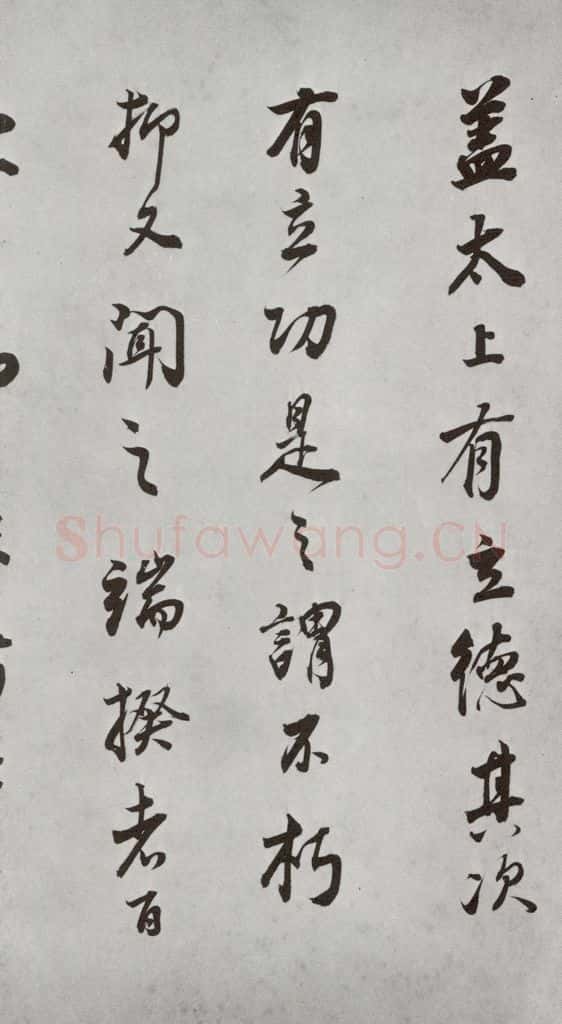 盖太上有立德其次
有立功是之謂不朽
抑又聞之端揆者百
Shufawang.CN